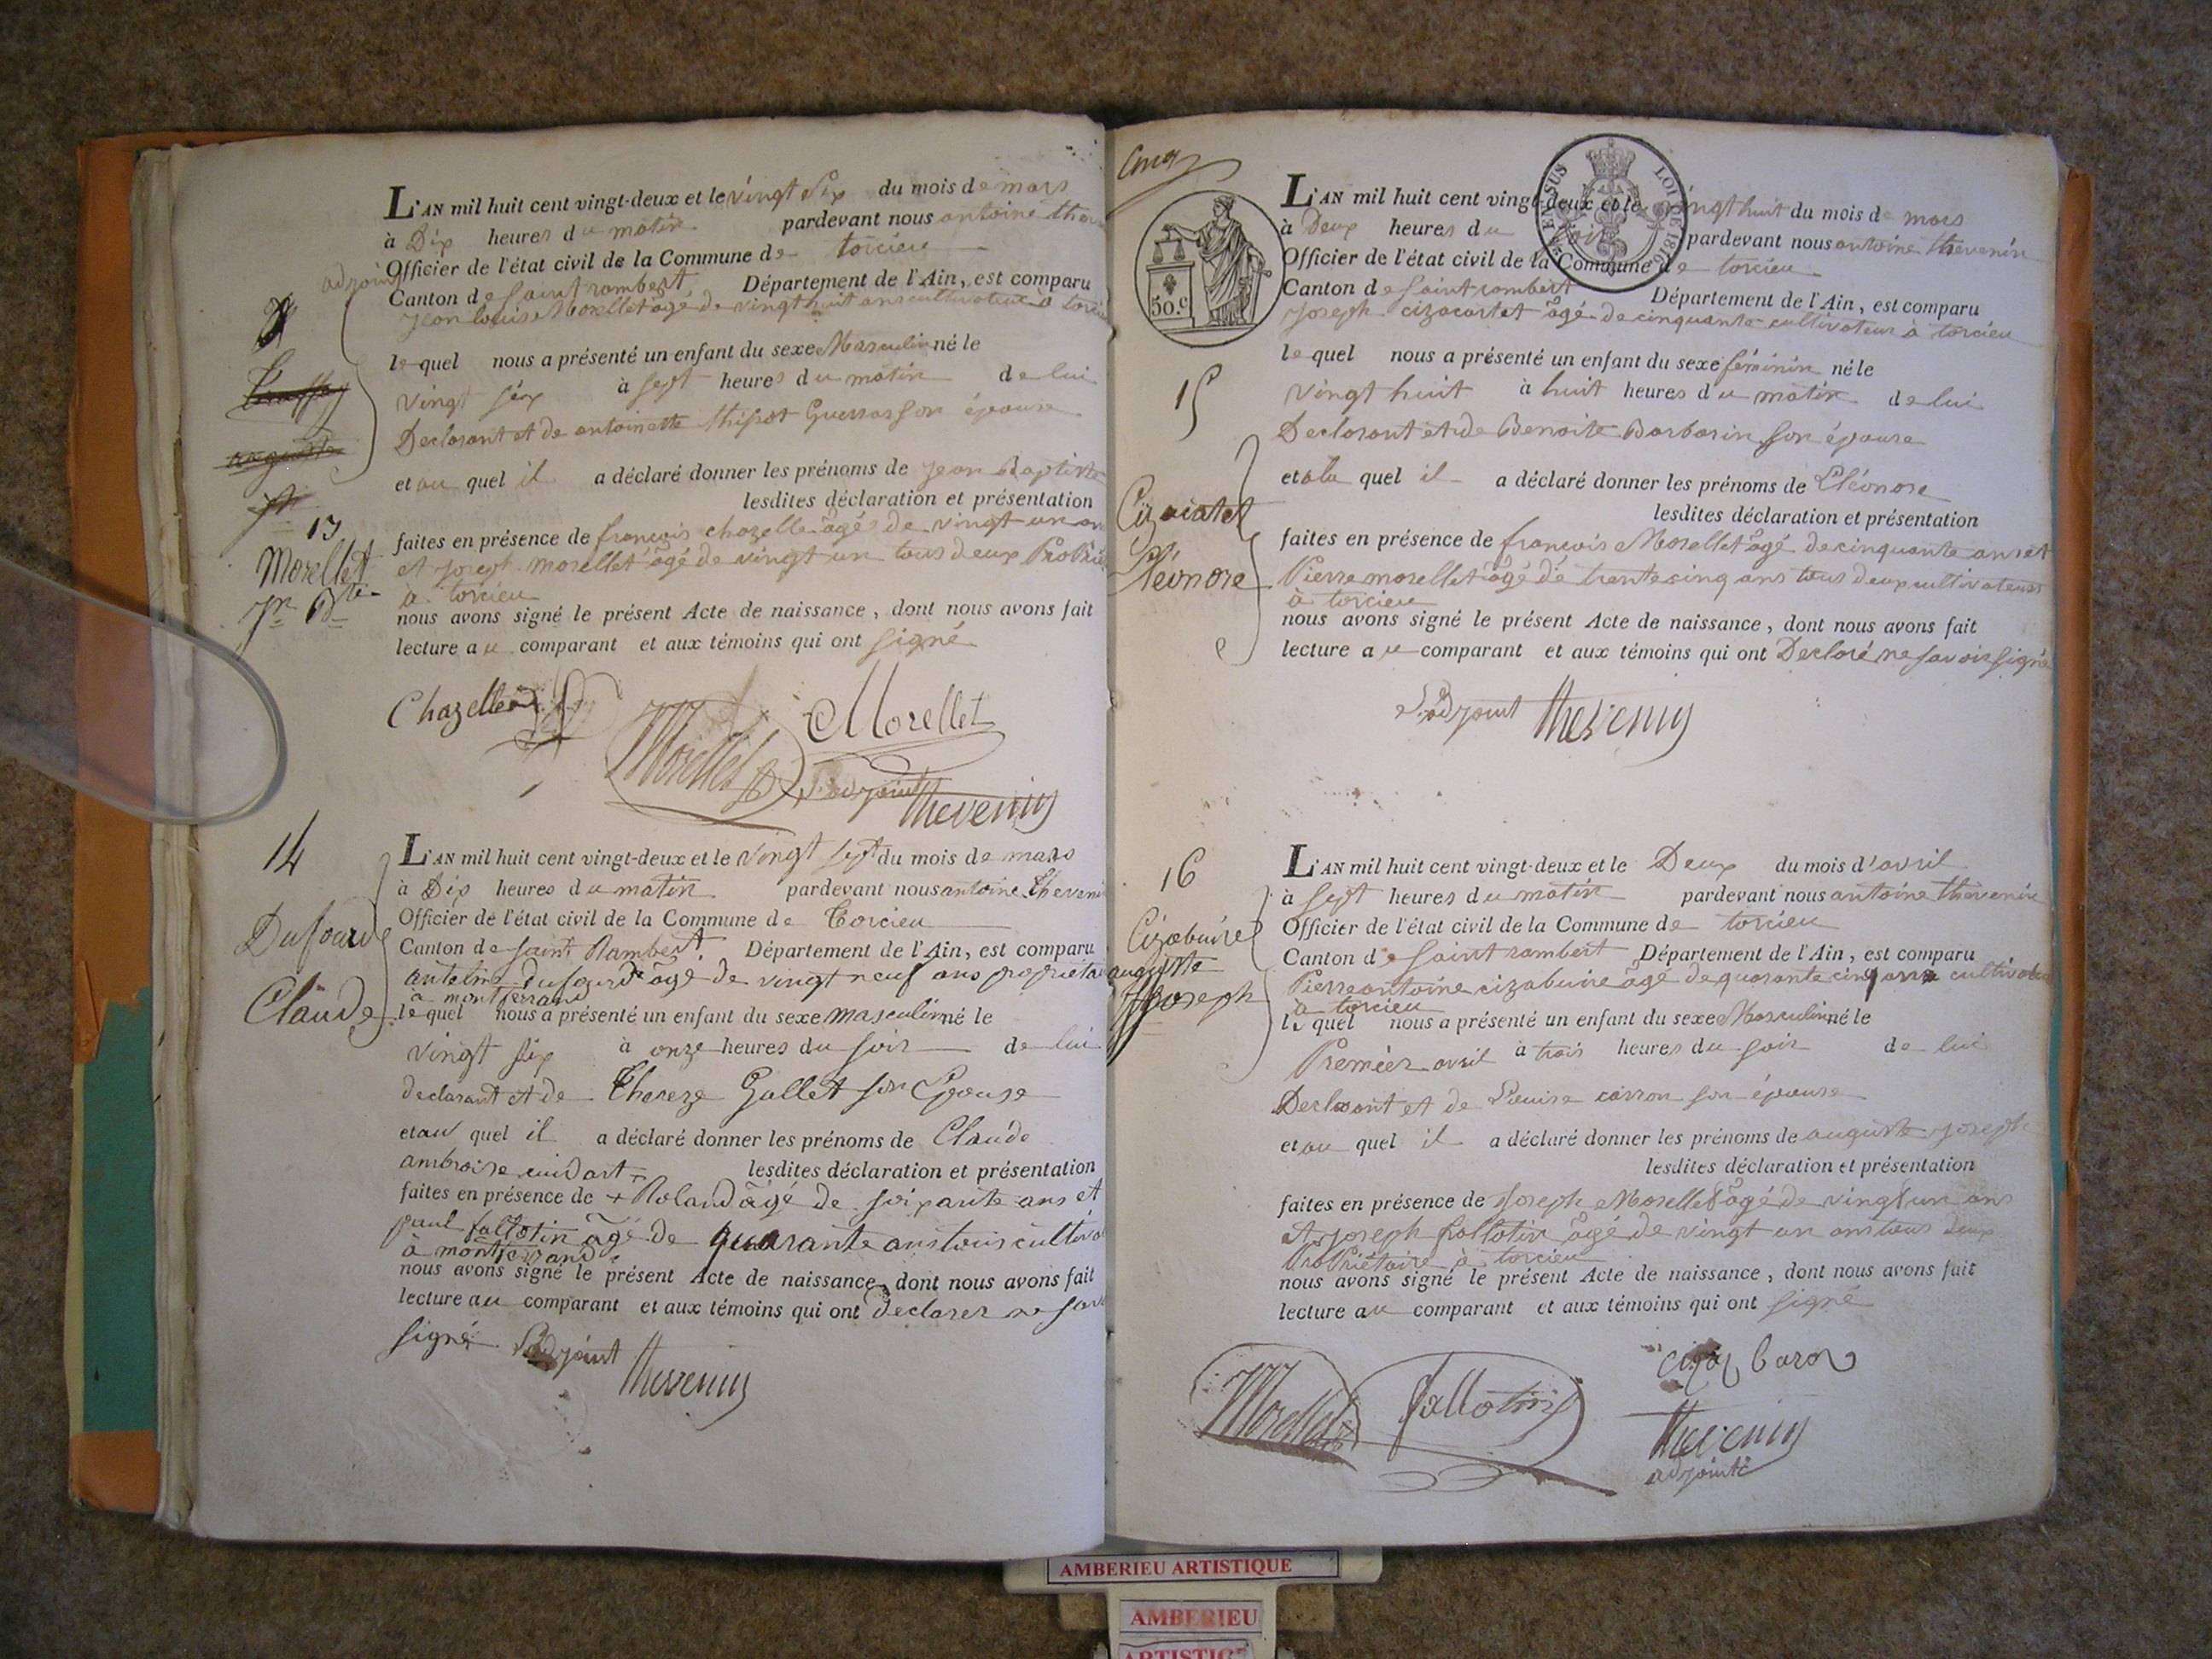 L'AN mil huit cent vingt-deux et le vingt six du mois de mars
à Dix heures du matin pardevant nous antoine theve
adjoint
Officier de l'état civil de la Commune de torcieu
Canton de Saint rambert Département de l'Ain, est comparu
jean louis Morellet âgé de vingt huit ans cultivateur à torcieu
lequel nous a présenté un enfant du sexe Masculin né le
vingt six à sept heures du matin de lui
Declarant et de antoinette son épouse
et au quel il a déclaré donner les prénoms de jean Baptiste
lesdites déclaration et présentation
faites en présence de françois chazelle âgé de vingt un an
et joseph morellet âgé de vingt un tous deux
à torcieu
nous avons signé le présent Acte de naissance, dont nous avons fait
lecture au comparant et aux témoins qui ont signé
13
Morellet
jn Bte
Chazelle
Morellet
Morellet
L'adjoint
thevenin
14
Dufourd
Claude
L'AN mil huit cent vingt-deux et le vingt sept du mois de mars
à Dix heures du matin pardevant nous antoine theveni
Officier de l'état civil de la Commune de torcieu
Canton de Saint Rambert. Département de l'Ain, est comparu
antelme Dufourd âgé de vingt neuf ans proprietai
à montferrand
lequel nous a présenté un enfant du sexe masculin né le
vingt six à onze heures du soir de lui
declarant et de Thereze Gallet son Epouse
et au quel il a déclaré donner les prénoms de Claude
ambroise lesdites déclaration et présentation
faites en présence de + Roland âgé de soixante ans et
paul fallotin âgé de quarante ans tous cultiva
à montferrand
nous avons signé le présent Acte de naissance, dont nous avons fait
lecture au comparant et aux témoins qui ont declarer ne sav
signé L'adjoint thevenin
cinq
50.c
LOI DE 1816
L'AN mil huit cent vingt-deux et le vingt huit du mois de mars
à Deux heures du soir pardevant nous antoine thevenin
Officier de l'état civil de la Commune de torcieu
Canton de Saint rambert Département de l'Ain, est comparu
joseph cizacartet âgé de cinquante cultivateur à torcieu
lequel nous a présenté un enfant du sexe féminin né le
15
vingt huit à huit heures du matin de lui
Declarant et de Benoite Barbarin son épouse
et a la quel il a déclaré donner les prénoms de Eléonore
lesdites déclaration et présentation
Eléonore
faites en présence de françois Morellet âgé de cinquante ans et
Pierre morellet âgé de trente cinq ans tous deux cultivateurs
à torcieu
nous avons signé le présent Acte de naissance, dont nous avons fait
lecture au comparant et aux témoins qui ont Declaré ne savoir signé
L'adjoint thevenin
16
Cizabuire
auguste
joseph
L'AN mil huit cent vingt-deux et le Deux du mois d'avril
à sept heures du matin pardevant nous antoine thevenin
Officier de l'état civil de la Commune de torcieu
Canton de Saint rambert Département de l'Ain, est comparu
Pierre antoine cizabuire âgé de quarante cinq ans cultivate
à torcieu
le quel nous a présenté un enfant du sexe Masculin né le
Premier avril à trois heures du soir de lui
Declarant et de Louise carron son épouse
et au quel il a déclaré donner les prénoms de auguste joseph
lesdites déclaration et présentation
faites en présence de joseph Morellet âgé de vingt un ans
et joseph fallotin âgé de vingt un ans tous deux
Propriétaire à torcieu
nous avons signé le présent Acte de naissance, dont nous avons fait
lecture au comparant et aux témoins qui ont signé
Morellet
fallotin
thevenin
adjoint
AMBERIEU ARTISTIQUE
AMBERIEU
ARTISTIQ